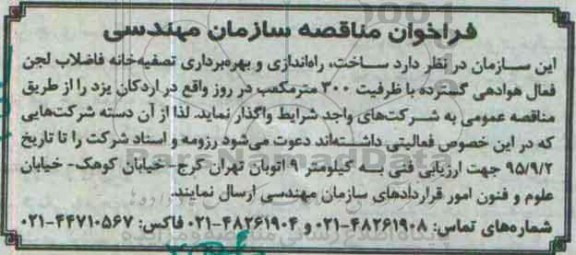 فراخوان مناقصه سازمان مهندسی
این سازمان در نظر دارد ساخت، راه‌اندازی و بهره‌برداری تصفیه‌خانه فاضلاب لجن
فعال هوادهی گسترده با ظرفیت ۳۰۰ مترمکعب در روز واقع در اردکان یزد را از طریق
مناقصه عمومی به شرکت‌های واجد شرایط واگذار نماید. لذا از آن دسته شرکت‌هایی
که در این خصوص فعالیتی داشته‌اند دعوت می‌شود رزومه و اسناد شرکت را تا تاریخ
۹۵/۹/۲ جهت ارزیابی فنی به کیلومتر ۹ اتوبان تهران کرج- خیابان کوهک- خیابان
علوم و فنون امور قراردادهای سازمان مهندسی ارسال نمایند.
شماره‌های تماس: ۴۸۲۶۱۹۰۸-۰۲۱ و ۴۸۲۶۱۹۰۴-۰۲۱ فاکس: ۴۴۷۱۰۵۶۷-۰۲۱